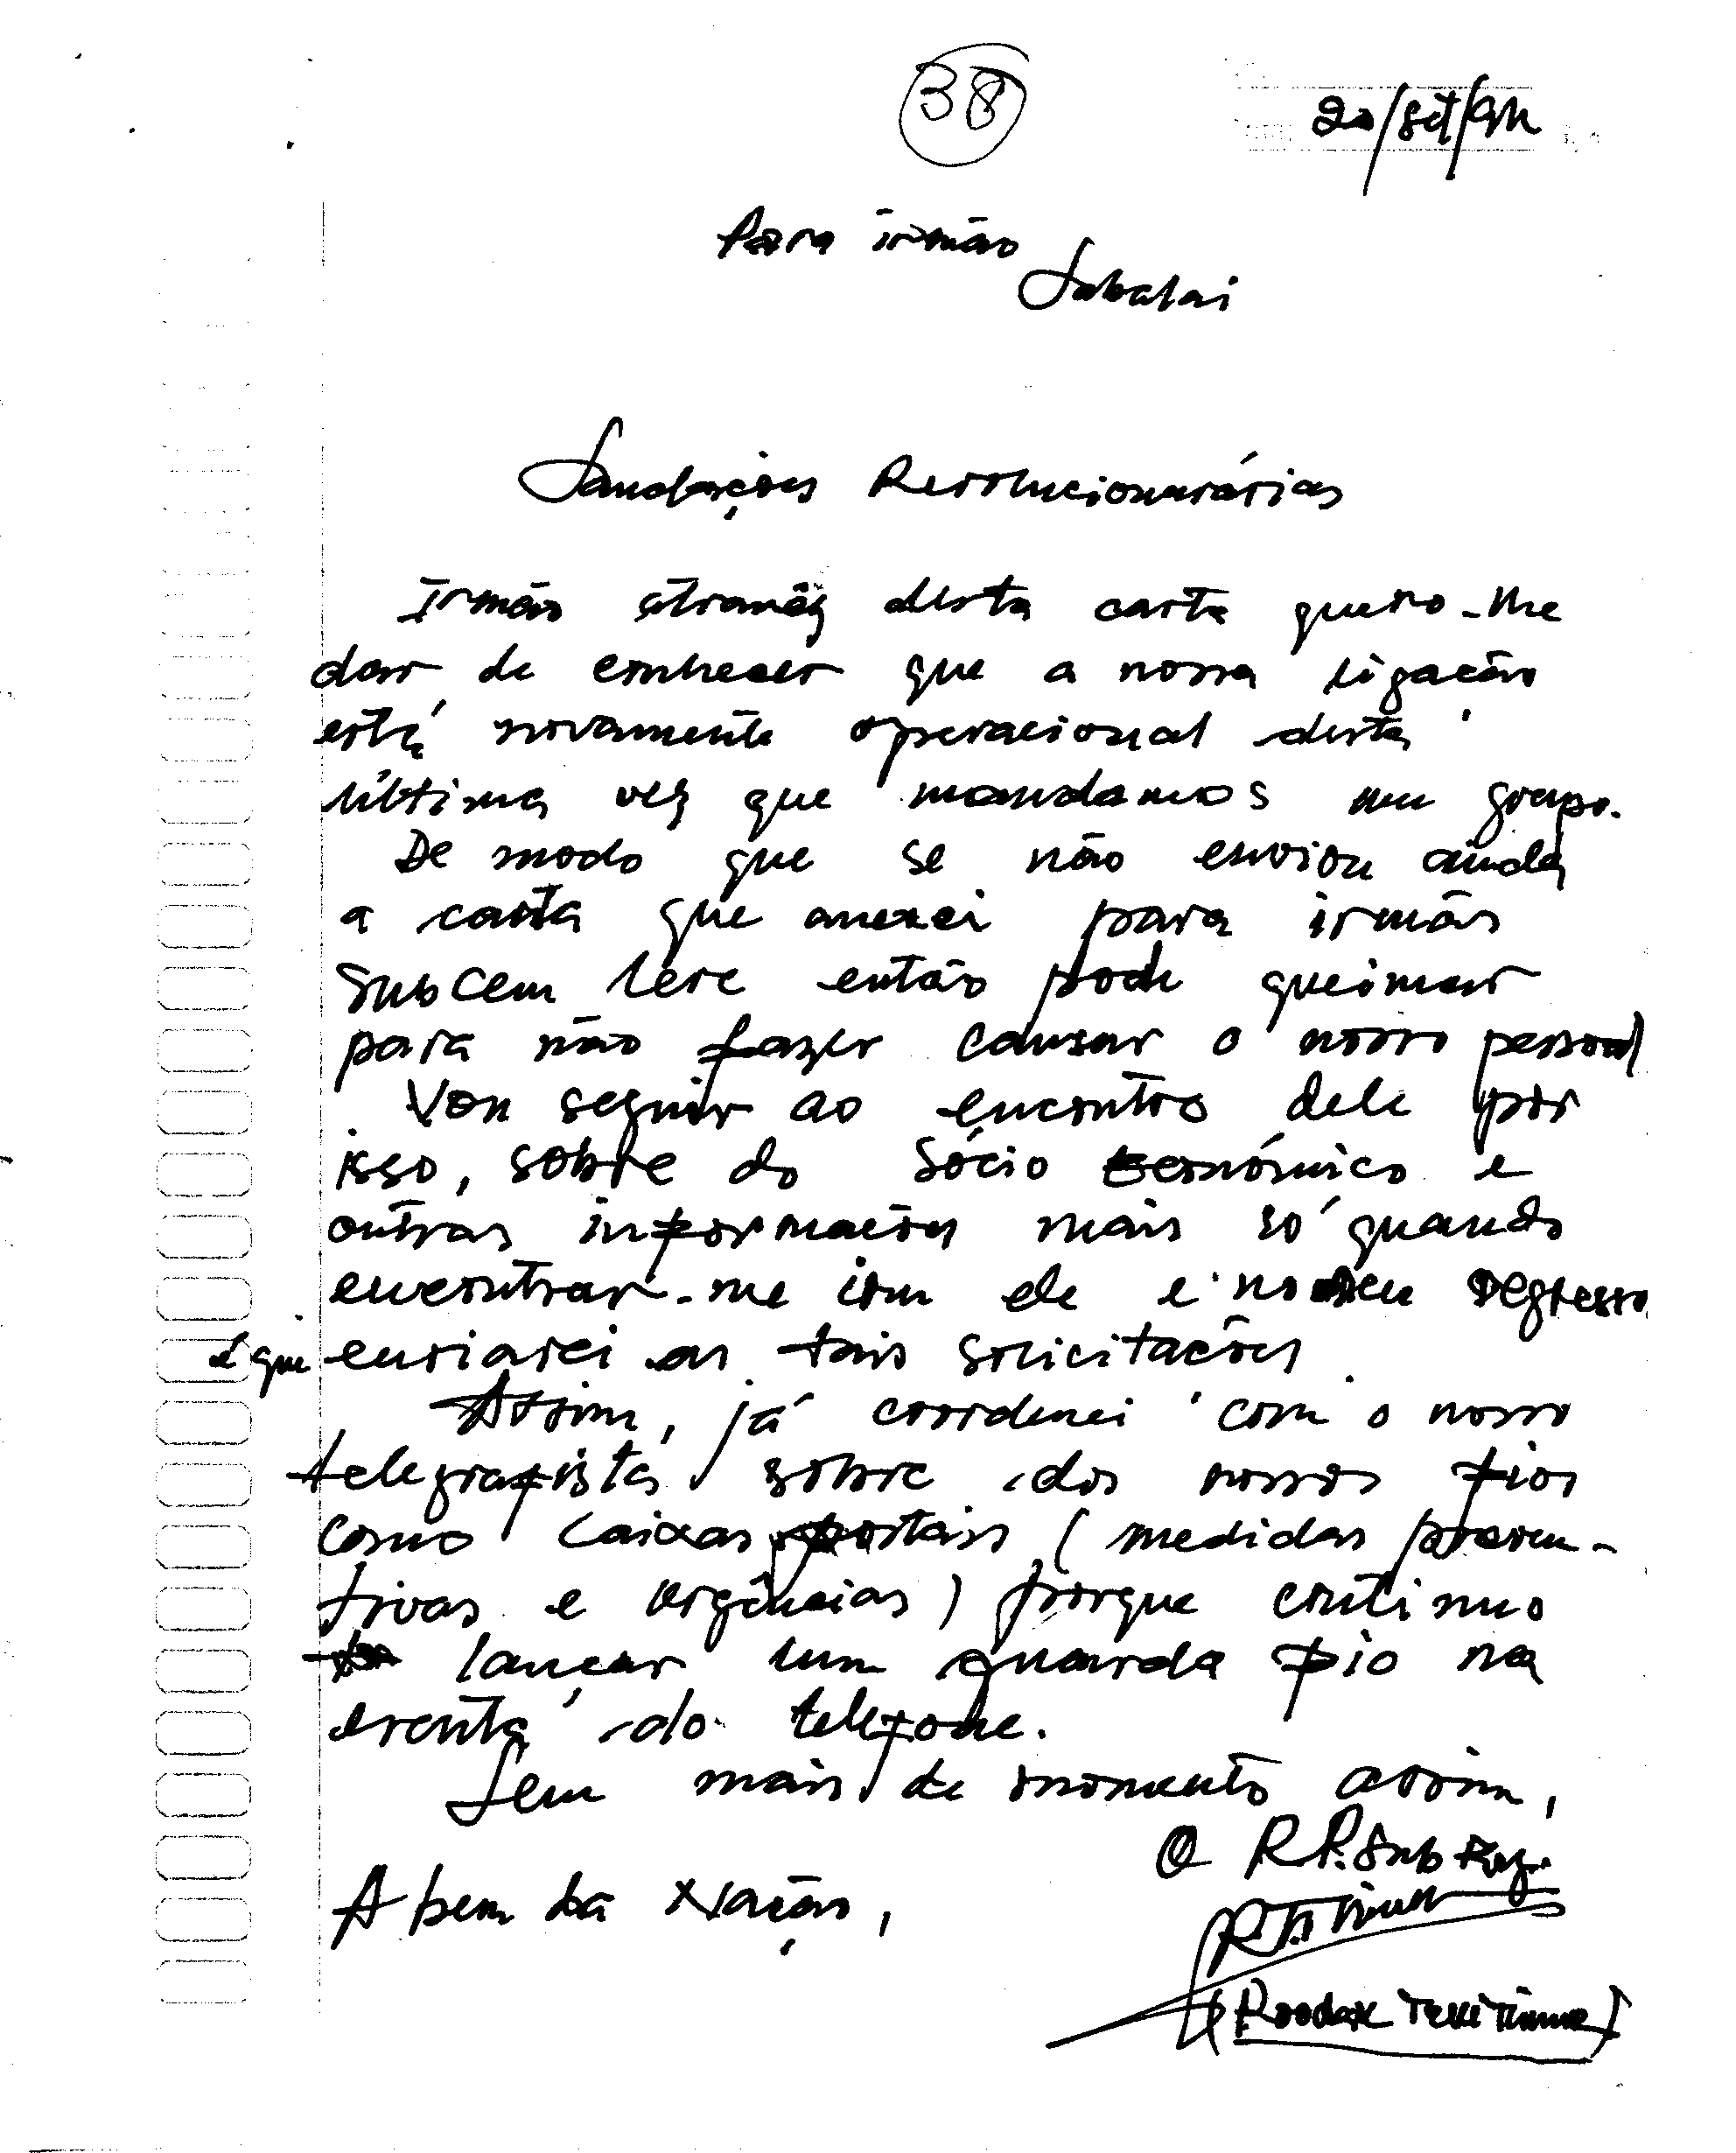 38
20/Set/94
Para irmão
Sabalai
Saudações Revolucionarárias
Irmão através desta carta quero-me
dar de conhecer que a nossa ligação
está novamente operacional desta
última vez que mandamos um grupo.
De modo que se não enviou ainda
a carta que anexei para irmão
SubCem Lere então pode queimar
para não fazer cansar o nosso pessoal
Vou seguir ao encontro dele por
isso, sobre do Sócio Económico e
outras informações mais só quando
encontrar-me com ele e no seu regresso
é que enviarei as tais solicitações.
Assim, já coordenei com o nosso
telegrafista sobre dos nossos fios
como caixas postais (medidas preven-
tivas e urgências) porque continuo
lançar um guarda fio na
do telefone.
Sem mais de momento assim,
O R.P. Sub Reg.
A bem da Nação,
(Roodak Teki Timur)